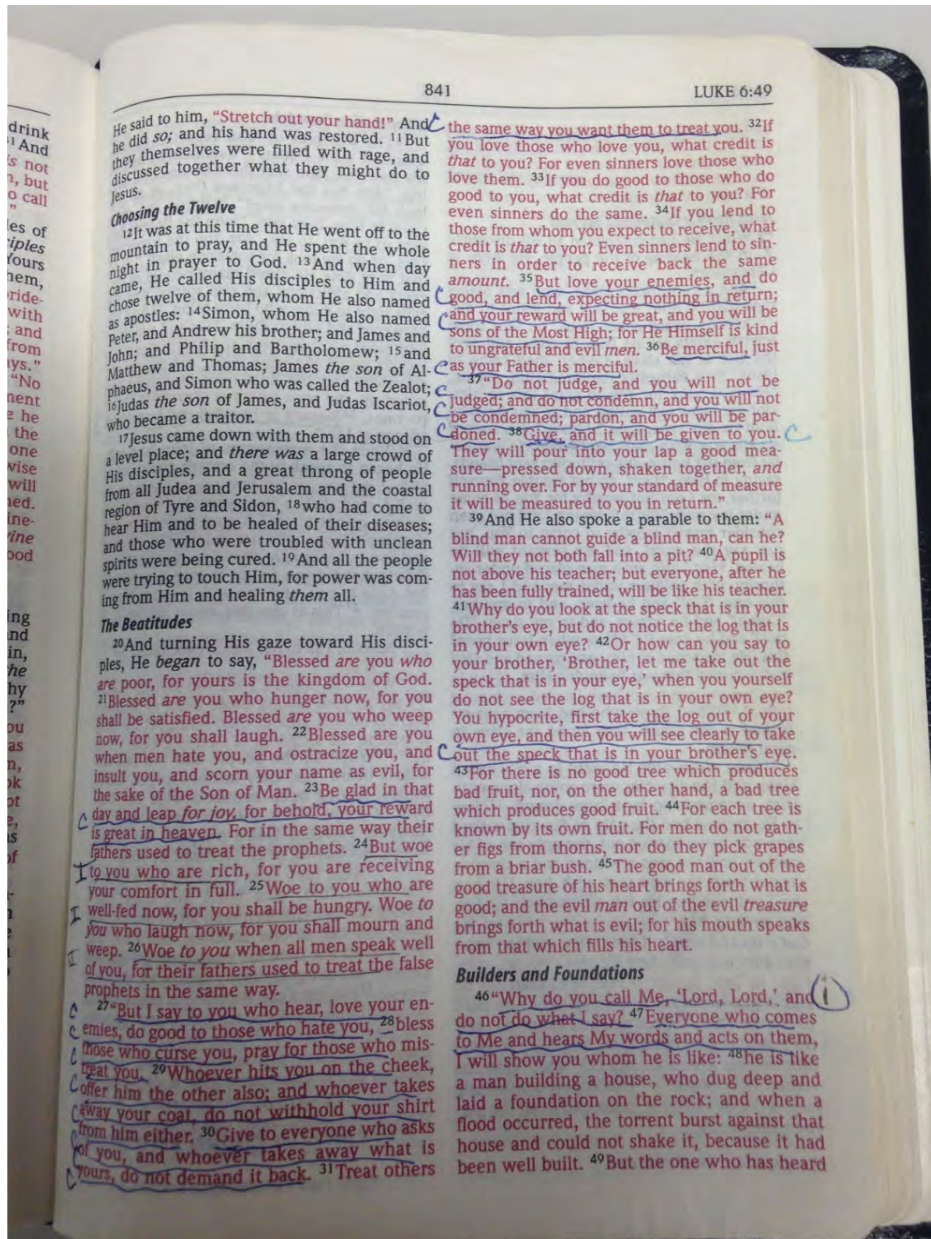 841
LUKE 6:49
drink
31 And
is not
n, but
o call
"
les of
ciples
Yours
hem,
bride-
with
; and
from
ays."
"No
ment
e he
the
one
wise
will
ned.
ine-
vine
ood
ing
nd
in,
he
hy
?"
ou
as
n,
ok
ot
e,
is
of
He said to him, "Stretch out your hand!" And
he did so; and his hand was restored. 11 But
they themselves were filled with rage, and
discussed together what they might do to
Jesus.
Choosing the Twelve
12 It was at this time that He went off to the
mountain to pray, and He spent the whole
night in prayer to God. 13 And when day
came, He called His disciples to Him and
chose twelve of them, whom He also named
as apostles: 14 Simon, whom He also named
Peter, and Andrew his brother; and James and
John; and Philip and Bartholomew; 15 and
Matthew and Thomas; James the son of Al-
phaeus, and Simon who was called the Zealot;
16 Judas the son of James, and Judas Iscariot,
who became a traitor.
17 Jesus came down with them and stood on
a level place; and there was a large crowd of
His disciples, and a great throng of people
from all Judea and Jerusalem and the coastal
region of Tyre and Sidon, 18 who had come to
hear Him and to be healed of their diseases;
and those who were troubled with unclean
spirits were being cured. 19 And all the people
were trying to touch Him, for power was com-
ing from Him and healing them all.
The Beatitudes
20 And turning His gaze toward His disci-
ples, He began to say, "Blessed are you who
are poor, for yours is the kingdom of God.
21 Blessed are you who hunger now, for you
shall be satisfied. Blessed are you who weep
now, for you shall laugh. 22 Blessed are you
when men hate you, and ostracize you, and
insult you, and scorn your name as evil, for
the sake of the Son of Man. 23 Be glad in that
C day and leap for joy, for behold, your reward
is great in heaven. For in the same way their
fathers used to treat the prophets. 24 But woe
I to you who are rich, for you are receiving
your comfort in full. 25 Woe to you who are
I well-fed now, for you shall be hungry. Woe to
you who laugh now, for you shall mourn and
I weep. 26 Woe to you when all men speak well
of you, for their fathers used to treat the false
prophets in the same way.
C 27 "But I say to you who hear, love your en-
C emies, do good to those who hate you, 28 bless
C those who curse you, pray for those who mis-
C treat you. 29 Whoever hits you on the cheek,
C offer him the other also; and whoever takes
C away your coat, do not withhold your shirt
C from him either. 30 Give to everyone who asks
C of you, and whoever takes away what is
C yours, do not demand it back. 31 Treat others
C the same way you want them to treat you. 32 If
you love those who love you, what credit is
that to you? For even sinners love those who
love them. 33 If you do good to those who do
good to you, what credit is that to you? For
even sinners do the same. 34 If you lend to
those from whom you expect to receive, what
credit is that to you? Even sinners lend to sin-
ners in order to receive back the same
amount. 35 But love your enemies, and do
C good, and lend, expecting nothing in return;
C and your reward will be great, and you will be
sons of the Most High; for He Himself is kind
to ungrateful and evil men. 36 Be merciful, just
C as your Father is merciful.
C 37 "Do not judge, and you will not be
C judged; and do not condemn, and you will not
be condemned; pardon, and you will be par-
C doned. 38 Give, and it will be given to you. C
They will pour into your lap a good mea-
sure—pressed down, shaken together, and
running over. For by your standard of measure
it will be measured to you in return."
39 And He also spoke a parable to them: "A
blind man cannot guide a blind man, can he?
Will they not both fall into a pit? 40 A pupil is
not above his teacher; but everyone, after he
has been fully trained, will be like his teacher.
41 Why do you look at the speck that is in your
brother's eye, but do not notice the log that is
in your own eye? 42 Or how can you say to
your brother, 'Brother, let me take out the
speck that is in your eye,' when you yourself
do not see the log that is in your own eye?
You hypocrite, first take the log out of your
own eye, and then you will see clearly to take
C out the speck that is in your brother's eye.
43 For there is no good tree which produces
bad fruit, nor, on the other hand, a bad tree
which produces good fruit. 44 For each tree is
known by its own fruit. For men do not gath-
er figs from thorns, nor do they pick grapes
from a briar bush. 45 The good man out of the
good treasure of his heart brings forth what is
good; and the evil man out of the evil treasure
brings forth what is evil; for his mouth speaks
from that which fills his heart.
Builders and Foundations
46 "Why do you call Me, 'Lord, Lord,' and 1
do not do what I say? 47 Everyone who comes
to Me and hears My words and acts on them,
I will show you whom he is like: 48 he is like
a man building a house, who dug deep and
laid a foundation on the rock; and when a
flood occurred, the torrent burst against that
house and could not shake it, because it had
been well built. 49 But the one who has heard